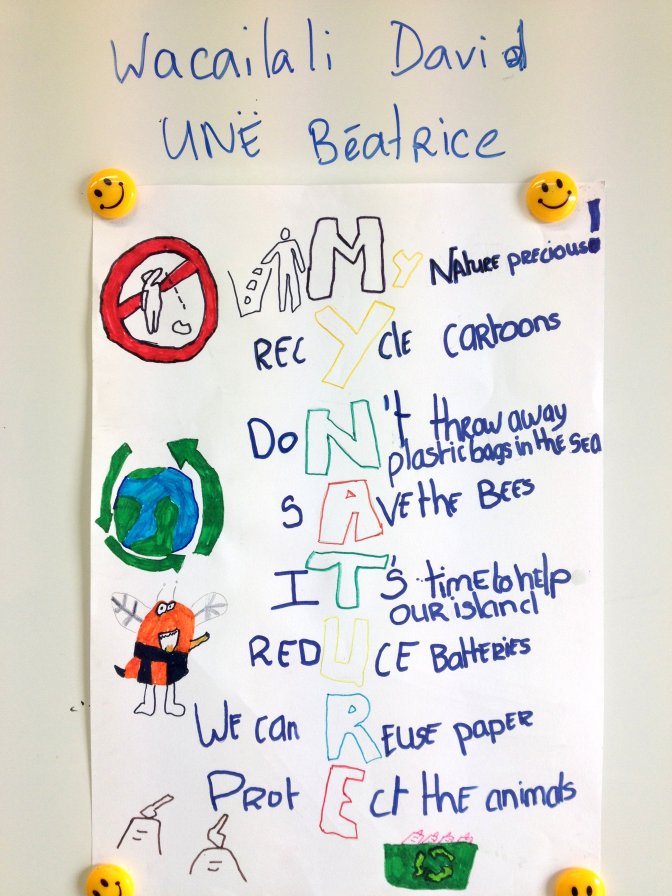 Wacailali David
UNË Béatrice
My NATURE PRECIOUS!
RECYclE cartoons
DoN't throw away
plastic bags in thE SEA
SAVE thE BEES
IT'S timE to hElp
our island
REDUCE BattERiES
WE can REUSE papER
ProtEct thE animals